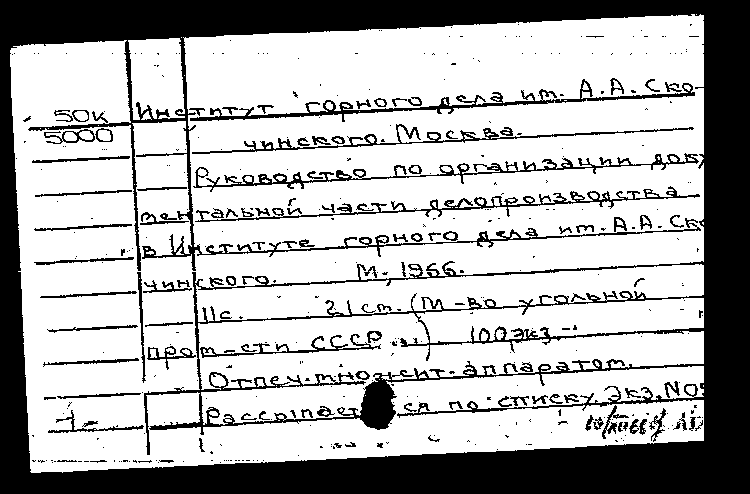 50к Институт горного дела им. А.А. Ско-
5000 чинского. Москва.
Руководство по организации доку
ментальной части делопроизводства
в Институте горного дела им. А.А. Ско
чинского. М., 1966.
11с. 21 см. (М-во угольной
пром-сти СССР...). 100 экз.-
Отпеч. множит. аппаратом.
-1- Рассылается по списку. Экз. №